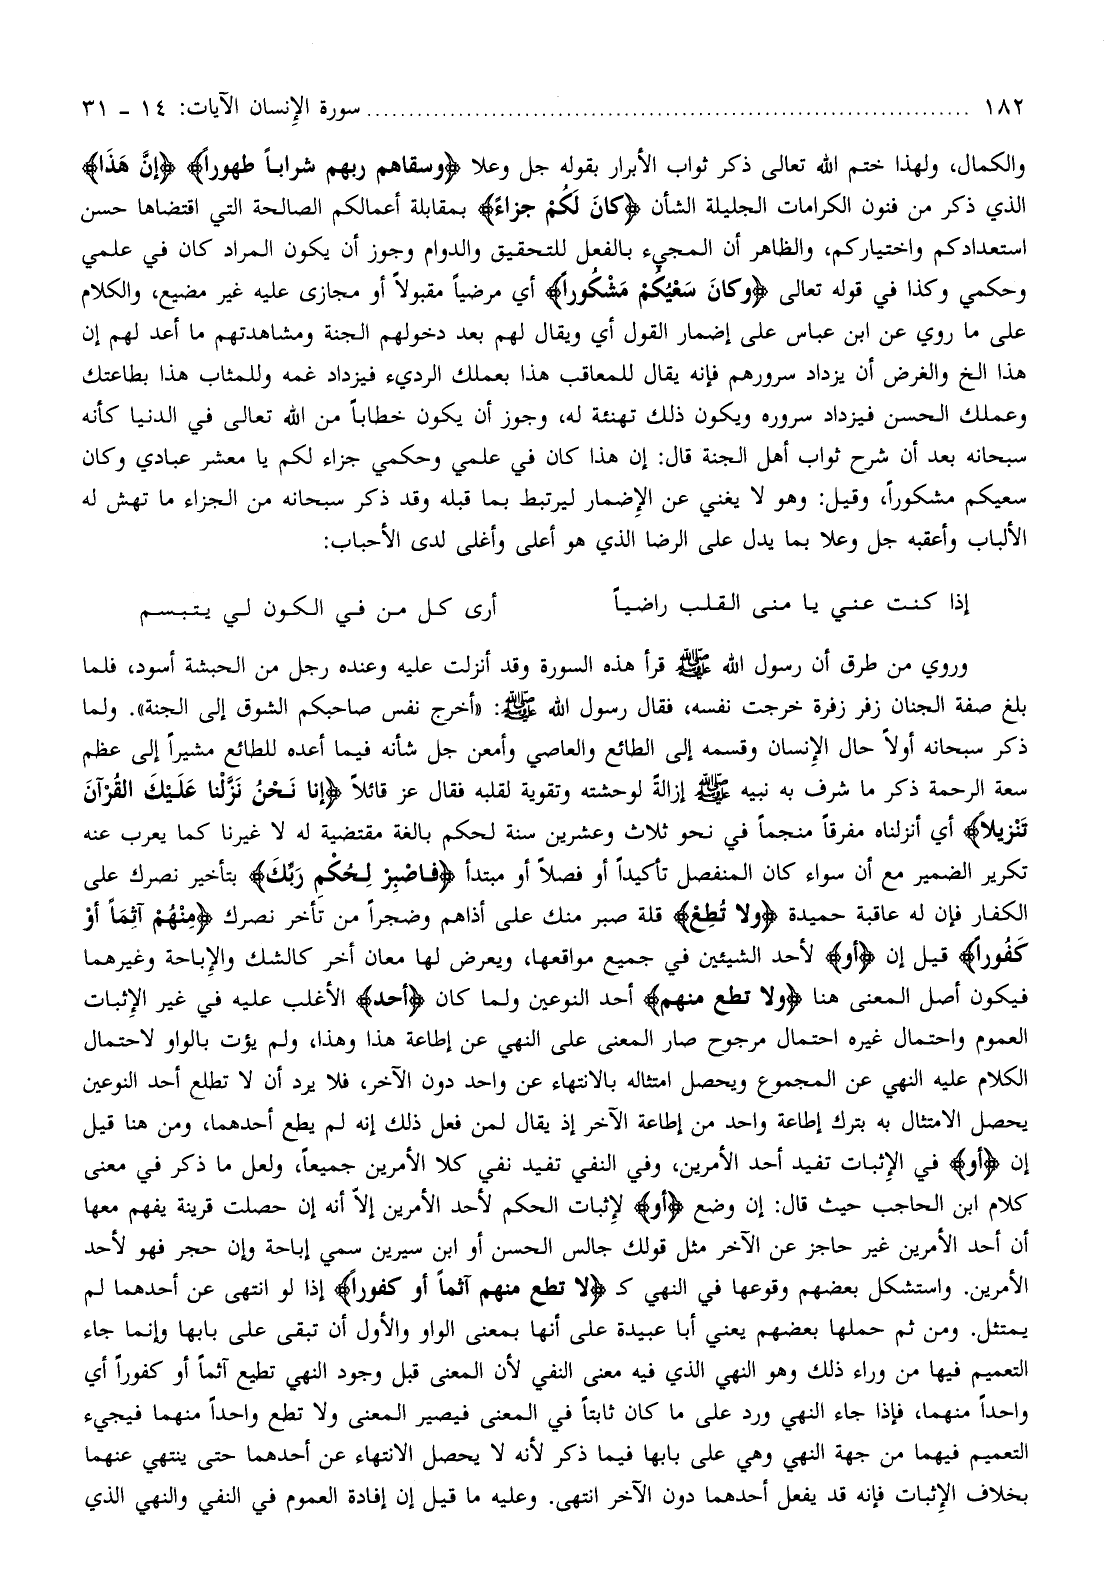 ١٨٢ ........................................................................ سورة الإنسان الآيات: ١٤ - ٣١
والكمال، ولهذا ختم الله تعالى ذكر ثواب الأبرار بقوله جل وعلا ﴿وسقاهم ربهم شراباً طهوراً﴾ ﴿إنَّ هَذَا﴾
الذي ذكر من فنون الكرامات الجليلة الشأن ﴿كانَ لَكُمْ جزاءً﴾ بمقابلة أعمالكم الصالحة التي اقتضاها حسن
استعدادكم واختياركم، والظاهر أن المجيء بالفعل للتحقيق والدوام وجوز أن يكون المراد كان في علمي
وحكمي وكذا في قوله تعالى ﴿وكانَ سَعْيُكُمْ مَشْكُوراً﴾ أي مرضياً مقبولاً أو مجازى عليه غير مضيع، والكلام
على ما روي عن ابن عباس على إضمار القول أي ويقال لهم بعد دخولهم الجنة ومشاهدتهم ما أعد لهم إن
هذا الخ والغرض أن يزداد سرورهم فإنه يقال للمعاقب هذا بعملك الرديء فيزداد غمه وللمثاب هذا بطاعتك
وعملك الحسن فيزداد سروره ويكون ذلك تهنئة له، وجوز أن يكون خطاباً من الله تعالى في الدنيا كأنه
سبحانه بعد أن شرح ثواب أهل الجنة قال: إن هذا كان في علمي وحكمي جزاء لكم يا معشر عبادي وكان
سعيكم مشكوراً، وقيل: وهو لا يغني عن الإضمار ليرتبط بما قبله وقد ذكر سبحانه من الجزاء ما تهش له
الألباب وأعقبه جل وعلا بما يدل على الرضا الذي هو أعلى وأغلى لدى الأحباب:
إذا كنت عني يا منى القلب راضياً أرى كل من في الكون لي يتبسم
وروي من طرق أن رسول الله ﷺ قرأ هذه السورة وقد أنزلت عليه وعنده رجل من الحبشة أسود، فلما
بلغ صفة الجنان زفر زفرة خرجت نفسه، فقال رسول الله ﷺ: «أخرج نفس صاحبكم الشوق إلى الجنة». ولما
ذكر سبحانه أولاً حال الإنسان وقسمه إلى الطائع والعاصي وأمعن جل شأنه فيما أعده للطائع مشيراً إلى عظم
سعة الرحمة ذكر ما شرف به نبيه ﷺ إزالةً لوحشته وتقوية لقلبه فقال عز قائلاً ﴿إنا نَحْنُ نَزَّلْنا عَلَيْكَ القُرْآنَ
تَنْزيلاً﴾ أي أنزلناه مفرقاً منجماً في نحو ثلاث وعشرين سنة لحكم بالغة مقتضية له لا غيرنا كما يعرب عنه
تكرير الضمير مع أن سواء كان المنفصل تأكيداً أو فصلاً أو مبتدأ ﴿فاصْبِرْ لِحُكْمِ رَبِّكَ﴾ بتأخير نصرك على
الكفار فإن له عاقبة حميدة ﴿ولا تُطِعْ﴾ قلة صبر منك على أذاهم وضجراً من تأخر نصرك ﴿مِنْهُمْ آثِمَاً أوْ
كَفُوراً﴾ قيل إن ﴿أو﴾ لأحد الشيئين في جميع مواقعها، ويعرض لها معان أخر كالشك والإباحة وغيرهما
فيكون أصل المعنى هنا ﴿ولا تطع منهم﴾ أحد النوعين ولما كان ﴿أحد﴾ الأغلب عليه في غير الإثبات
العموم واحتمال غيره احتمال مرجوح صار المعنى على النهي عن إطاعة هذا وهذا، ولم يؤت بالواو لاحتمال
الكلام عليه النهي عن المجموع ويحصل امتثاله بالانتهاء عن واحد دون الآخر، فلا يرد أن لا تطلع أحد النوعين
يحصل الامتثال به بترك إطاعة واحد من إطاعة الآخر إذ يقال لمن فعل ذلك إنه لم يطع أحدهما، ومن هنا قيل
إن ﴿أو﴾ في الإثبات تفيد أحد الأمرين، وفي النفي تفيد نفي كلا الأمرين جميعاً، ولعل ما ذكر في معنى
كلام ابن الحاجب حيث قال: إن وضع ﴿أو﴾ لإثبات الحكم لأحد الأمرين إلاّ أنه إن حصلت قرينة يفهم معها
أن أحد الأمرين غير حاجز عن الآخر مثل قولك جالس الحسن أو ابن سيرين سمي إباحة وإن حجر فهو لأحد
الأمرين. واستشكل بعضهم وقوعها في النهي كـ ﴿لا تطع منهم آثماً أو كفوراً﴾ إذا لو انتهى عن أحدهما لم
يمتثل. ومن ثم حملها بعضهم يعني أبا عبيدة على أنها بمعنى الواو والأول أن تبقى على بابها وإنما جاء
التعميم فيها من وراء ذلك وهو النهي الذي فيه معنى النفي لأن المعنى قبل وجود النهي تطيع آثماً أو كفوراً أي
واحداً منهما، فإذا جاء النهي ورد على ما كان ثابتاً في المعنى فيصير المعنى ولا تطع واحداً منهما فيجيء
التعميم فيهما من جهة النهي وهي على بابها فيما ذكر لأنه لا يحصل الانتهاء عن أحدهما حتى ينتهي عنهما
بخلاف الإثبات فإنه قد يفعل أحدهما دون الآخر انتهى. وعليه ما قيل إن إفادة العموم في النفي والنهي الذي